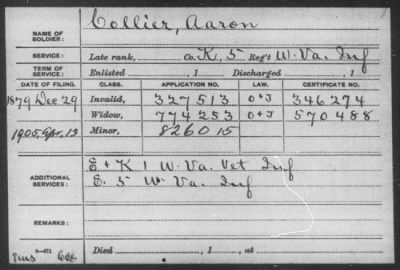 NAME OF SOLDIER: Collier, Aaron
SERVICE: Late rank, Co. K, 5 Reg't W. Va. Inf
TERM OF SERVICE: Enlisted , 1 Discharged , 1
DATE OF FILING. CLASS. APPLICATION NO. LAW. CERTIFICATE NO.
1879 Dec. 29 Invalid, 327513 O+J 346274
Widow, 774253 O+J 570488
1905, Apr. 13 Minor, 826015
ADDITIONAL SERVICES: E + K 1 W. Va. Vet Inf
E. 5 W. Va. Inf
REMARKS:
Died , 1 , at